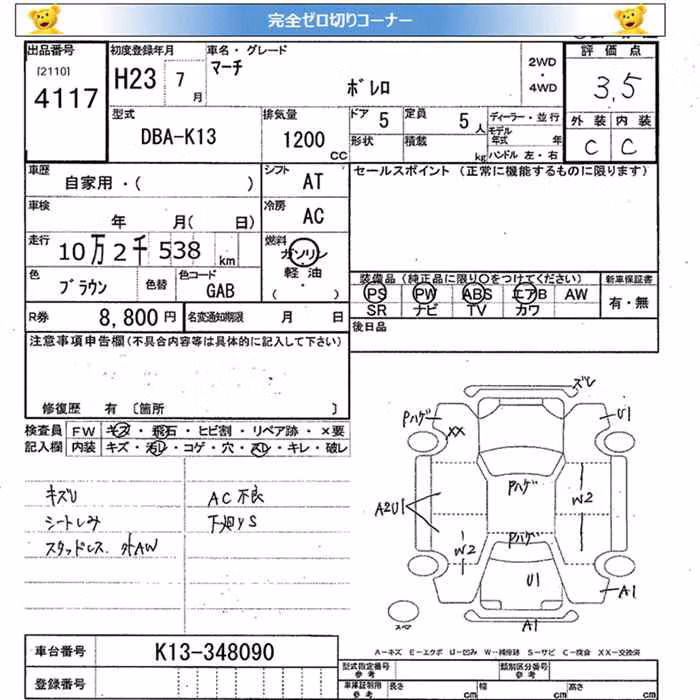 完全ゼロ切りコーナー
出品番号
[2110]
4117
初度登録年月
H23 7月
車名・グレード
マーチ
ボレロ
2WD
・
4WD
評価点
3.5
型式
DBA-K13
排気量
1200
CC
ドア 5
定員 5人
形状
積載 kg
ディーラー・並行
モデル年式 年
ハンドル 左・右
外装 内装
C C
車歴
自家用・( )
シフト
AT
セールスポイント (正常に機能するものに限ります)
車検
年 月( 日)
冷房
AC
走行
10万2千538km
燃料
ガソリン
・
軽油
( )
色
ブラウン
色替
色コード
GAB
装備品(純正品に限り○をつけてください)
PS PW ABS エアB AW
SR ナビ TV カワ
新車保証書
有・無
R券 8,800円
名変通知期限 月 日
後日品
注意事項申告欄(不具合内容等は具体的に記入して下さい)
修復歴 有〔箇所 〕
検査員 FW キズ・飛石・ヒビ割・リペア跡・×要
記入欄 内装 キズ・汚レ・コゲ・穴・スレ・キレ・破レ
キズU
シートしみ
スタッドレス 外AW
AC不良
下廻りS
ズレ
Pハゲ
U1
XX
Pハゲ
W2
A2U1
Pハゲ
W2
U1
A1
A1
スペア
A-キズ E-エクボ U-凹み W-補修跡 S-サビ C-腐食 XX-交換済
車台番号 K13-348090
登録番号
型式指定番号
参考
類別区分番号
参考
車庫証明用
参考
長さ cm 幅 cm 高さ cm